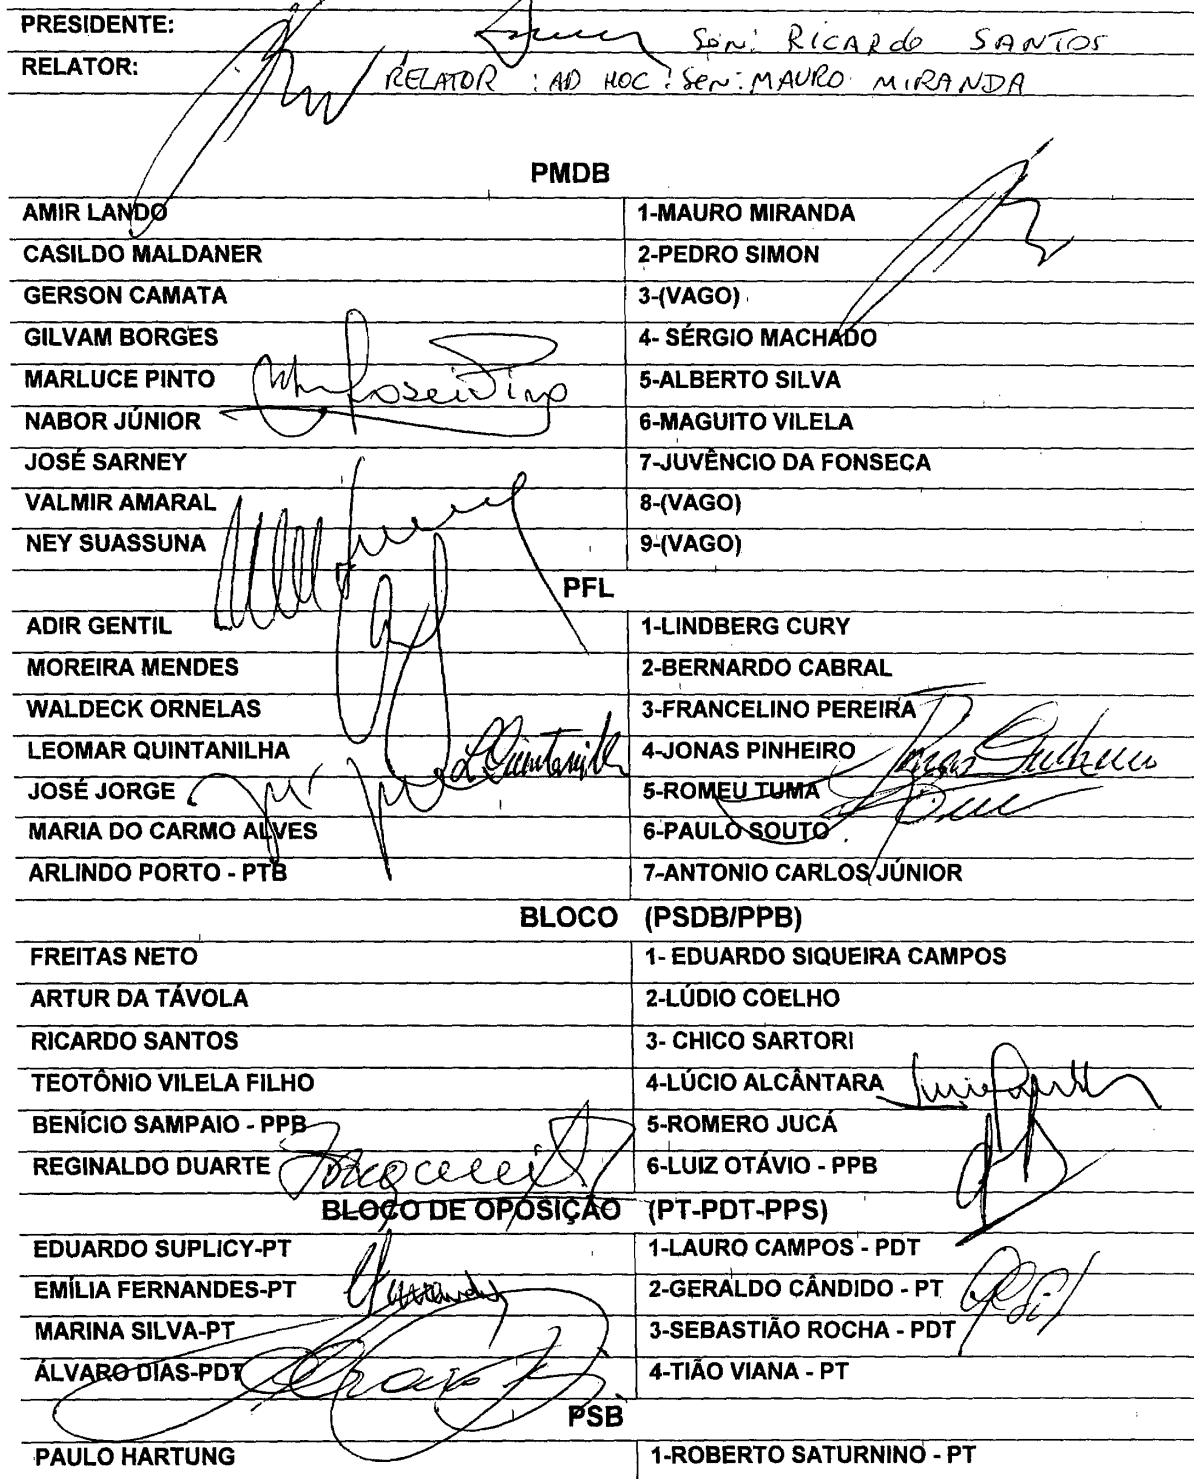 PRESIDENTE: Sen: RICARDO SANTOS
RELATOR: RELATOR : AD HOC : Sen: MAURO MIRANDA
PMDB
AMIR LANDO 1-MAURO MIRANDA
CASILDO MALDANER 2-PEDRO SIMON
GERSON CAMATA 3-(VAGO)
GILVAM BORGES 4- SÉRGIO MACHADO
MARLUCE PINTO 5-ALBERTO SILVA
NABOR JÚNIOR 6-MAGUITO VILELA
JOSÉ SARNEY 7-JUVÊNCIO DA FONSECA
VALMIR AMARAL 8-(VAGO)
NEY SUASSUNA 9-(VAGO)
PFL
ADIR GENTIL 1-LINDBERG CURY
MOREIRA MENDES 2-BERNARDO CABRAL
WALDECK ORNELAS 3-FRANCELINO PEREIRA
LEOMAR QUINTANILHA LQuintanilha 4-JONAS PINHEIRO Jonas Pinheiro
JOSÉ JORGE 5-ROMEU TUMA
MARIA DO CARMO ALVES 6-PAULO SOUTO
ARLINDO PORTO - PTB 7-ANTONIO CARLOS JÚNIOR
BLOCO (PSDB/PPB)
FREITAS NETO 1- EDUARDO SIQUEIRA CAMPOS
ARTUR DA TÁVOLA 2-LÚDIO COELHO
RICARDO SANTOS 3- CHICO SARTORI
TEOTÔNIO VILELA FILHO 4-LÚCIO ALCÂNTARA
BENÍCIO SAMPAIO - PPB 5-ROMERO JUCÁ
REGINALDO DUARTE 6-LUIZ OTÁVIO - PPB
BLOCO DE OPOSIÇÃO (PT-PDT-PPS)
EDUARDO SUPLICY-PT 1-LAURO CAMPOS - PDT
EMÍLIA FERNANDES-PT 2-GERALDO CÂNDIDO - PT
MARINA SILVA-PT 3-SEBASTIÃO ROCHA - PDT
ÁLVARO DIAS-PDT 4-TIÃO VIANA - PT
PSB
PAULO HARTUNG 1-ROBERTO SATURNINO - PT